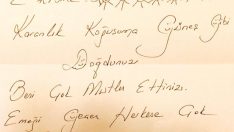 Karanlık Koğuşuma Güneş Gibi
Doğdunuz
Beni Çok Mutlu Ettiniz.
Emeği Geçen Herkese Çok